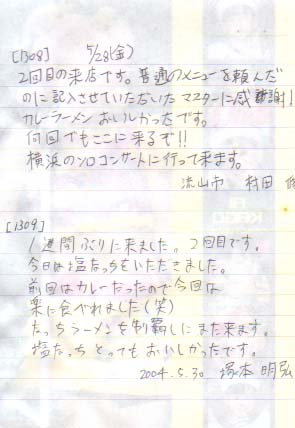 [1308] 5/28(金)
2回目の来店です。普通のメニューを頼んだ
のに記入させていただいたマスターに感謝!
カレーラーメン おいしかったです。
何回でもここに来るぞ!!
横浜のソロコンサートに行って来ます。
流山市 村田
[1309]
1週間ぶりに来ました。2回目です。
今日は塩なっちをいただきました。
前回はカレーだったので今回は
楽に食べれました(笑)
なっちラーメンを制覇しにまた来ます。
塩なっち とってもおいしかったです。
2004.5.30 塚本 明弘